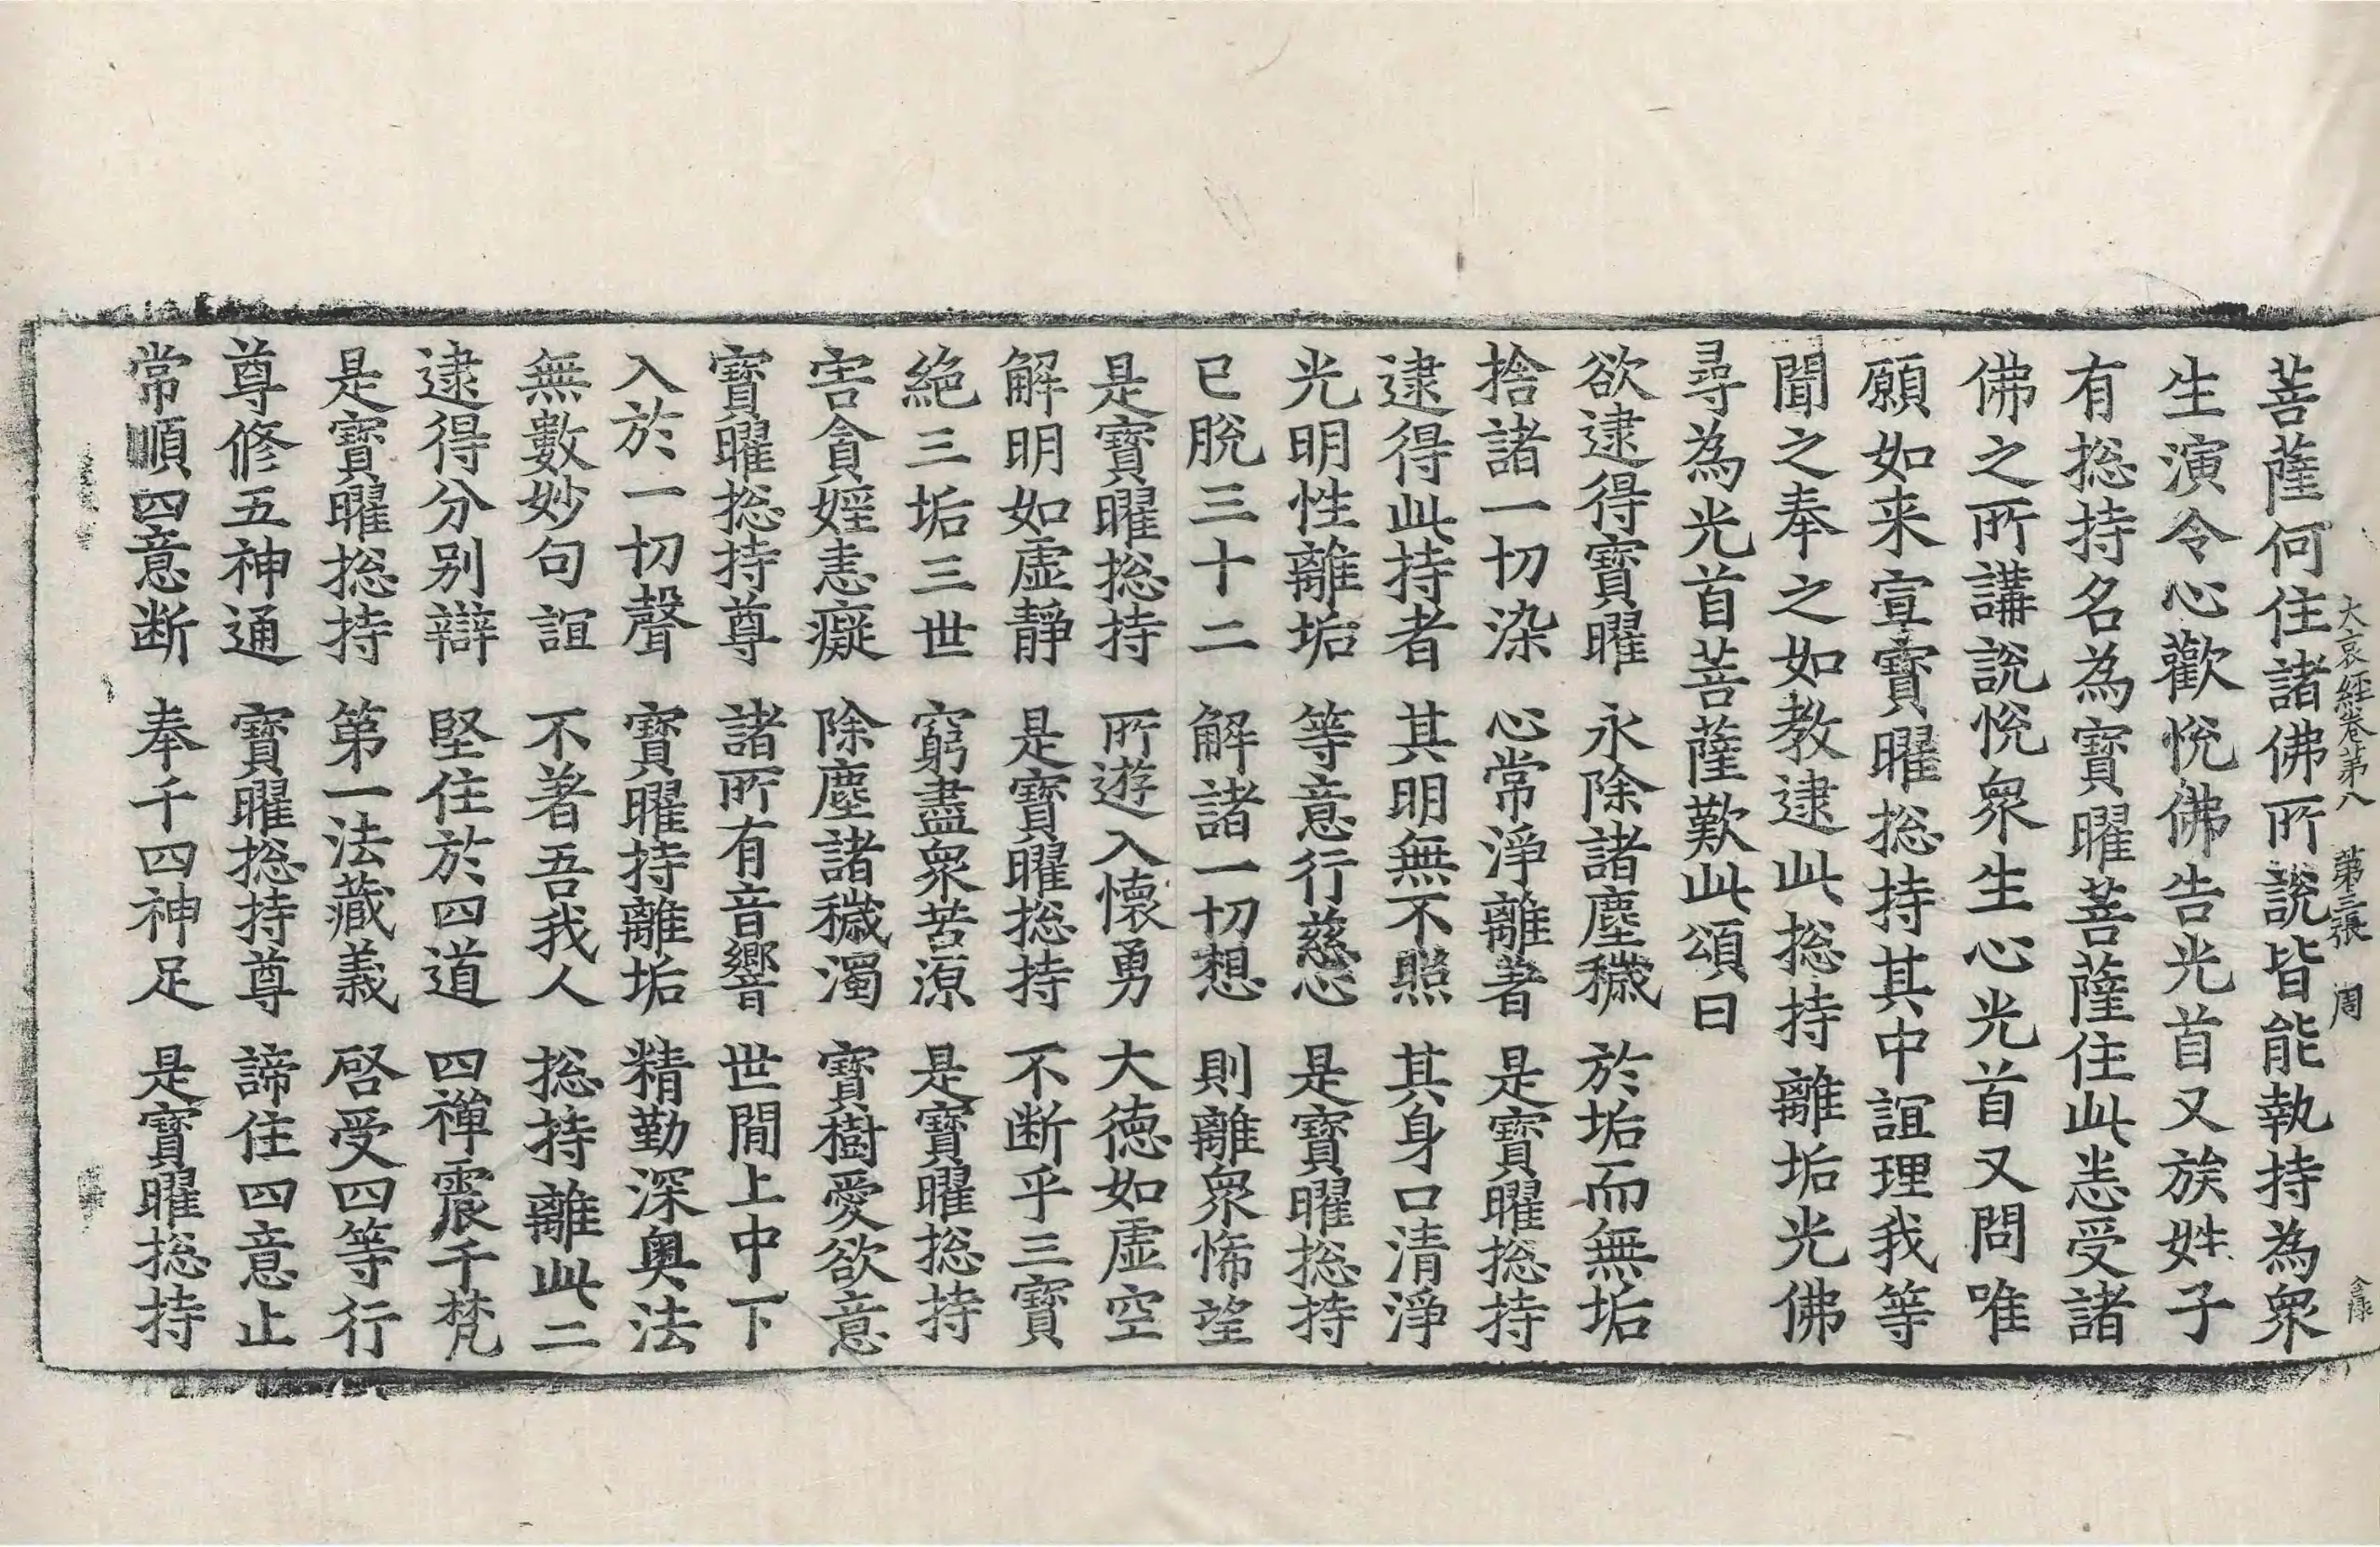 大哀經卷第八 第三張 周
菩薩何住諸佛所說皆能執持為衆
生演令心歡悅佛告光首又族姓子
有捴持名為寶曜菩薩住此恙受諸
佛之所講說悅衆生心光首又問唯
願如来宣寶曜捴持其中誼理我等
聞之奉之如教逮此捴持離垢光佛
尋為光首菩薩歎此頌曰
欲逮得寶曜 永除諸塵穢 於垢而無垢
捨諸一切染 心常淨離著 是寶曜捴持
逮得此持者 其明無不照 其身口清淨
光明性離垢 等意行慈心 是寶曜捴持
已脫三十二 解諸一切想 則離衆悕望
是寶曜捴持 所遊入懷勇 大德如虛空
解明如虛靜 是寶曜捴持 不断乎三寶
絕三垢三世 窮盡衆苦源 是寶曜捴持
害貪婬恚癡 除塵諸穢濁 寶樹愛欲意
寶曜捴持尊 諸所有音響 世間上中下
入於一切聲 寶曜持離垢 精勤深奧法
無數妙句誼 不著吾我人 捴持離此二
逮得分别辯 堅住於四道 四禪震千梵
是寶曜捴持 第一法藏義 啓受四等行
尊修五神通 寶曜捴持尊 諦住四意止
常順四意断 奉千四神足 是寶曜捴持